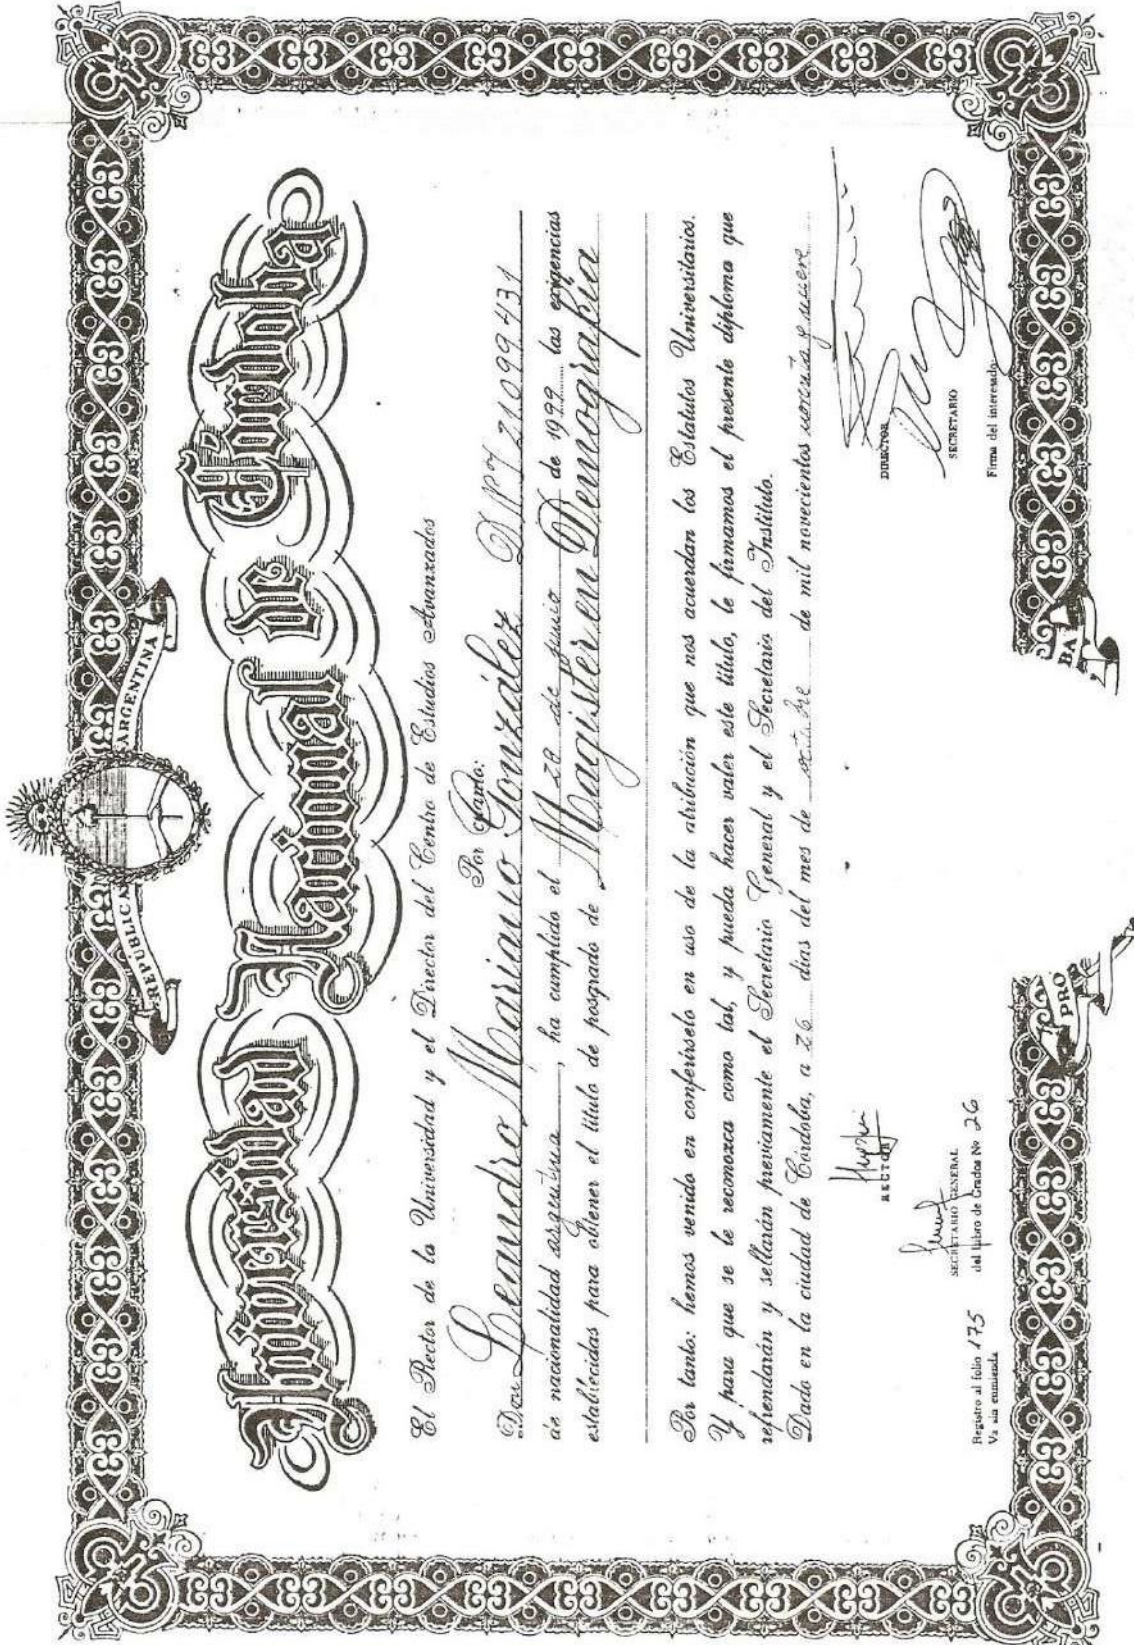 REPUBLICA ARGENTINA
Universidad Nacional de Córdoba
El Rector de la Universidad y el Director del Centro de Estudios Avanzados
Por Cuanto:
Don Leandro Mariano González DNI 21099431
de nacionalidad argentina, ha cumplido el 28 de junio de 1999 las exigencias
establecidas para obtener el título de posgrado de Magister en Demografía
Por tanto: hemos venido en conferírselo en uso de la atribución que nos acuerdan los Estatutos Universitarios.
Y para que se le reconozca como tal, y pueda hacer valer este título, le firmamos el presente diploma que
refrendarán y sellarán previamente el Secretario General y el Secretario del Instituto.
Dado en la ciudad de Córdoba, a 26 días del mes de octubre de mil novecientos noventa y nueve
RECTOR
DIRECTOR
SECRETARIO GENERAL
SECRETARIO
Registro al folio 175 del Libro de Grados Nº 26
Va sin enmienda
Firma del interesado:
PRO
BA